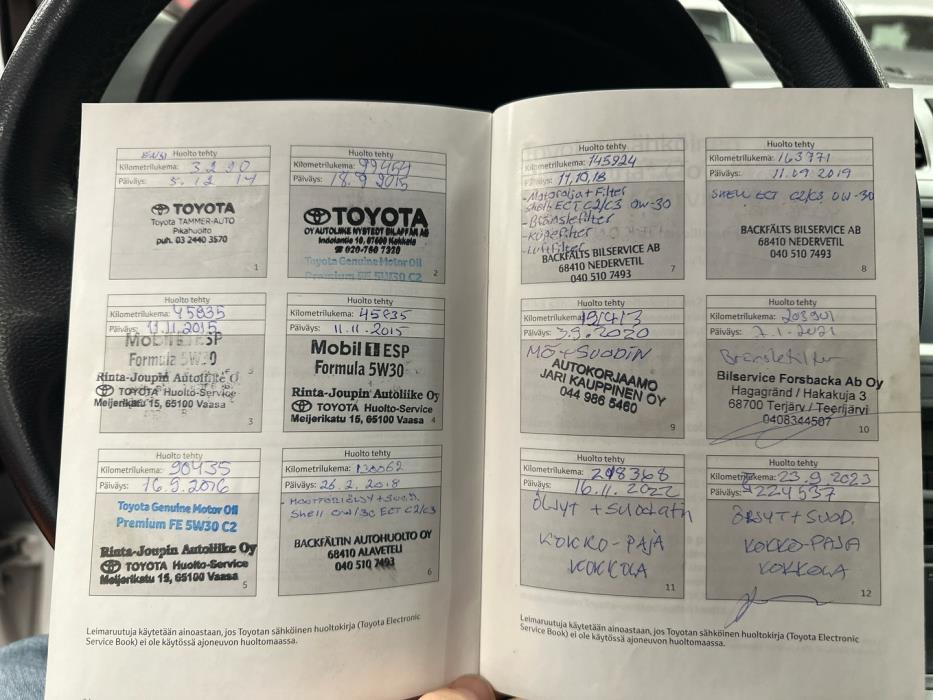 ENSI Huolto tehty
Kilometrilukema: 3290
Päiväys: 5.12 14
TOYOTA
Toyota TAMMER-AUTO
Pikahuolto
puh. 03 2440 3570
1
Huolto tehty
Kilometrilukema:
Päiväys: 18.9 2015
TOYOTA
OY AUTOLIIKE NYSTEDT BILAFFÄR AB
Indolantie 10, 67600 Kokkola
☎ 020-760 7320
Toyota Genuine Motor Oil
Premium FE 5W30 C2
2
Huolto tehty
Kilometrilukema: 45835
Päiväys: 11.11.2015
Mobil 1 ESP
Formula 5W30
Rinta-Joupin Autoliike O
TOYOTA Huolto-Service
Meijerikatu 15, 65100 Vaasa
3
Huolto tehty
Kilometrilukema: 45835
Päiväys: 11.11.2015
Mobil 1 ESP
Formula 5W30
Rinta-Joupin Autoliike Oy
TOYOTA Huolto-Service
Meijerikatu 15, 65100 Vaasa
4
Huolto tehty
Kilometrilukema: 90435
Päiväys: 16.9.2016
Toyota Genuine Motor Oil
Premium FE 5W30 C2
Rinta-Joupin Autoliike Oy
TOYOTA Huolto-Service
Meijerikatu 15, 65100 Vaasa
5
Huolto tehty
Kilometrilukema: 130062
Päiväys: 26.2.2018
MOOTTORIÖLJY + SUOD.
Shell 0W/30 ECT C2/C3
BACKFÄLTIN AUTOHUOLTO OY
68410 ALAVETELI
040 510 7493
6
Leimaruutuja käytetään ainoastaan, jos Toyotan sähköinen huoltokirja (Toyota Electronic
Service Book) ei ole käytössä ajoneuvon huoltomaassa.
Huolto tehty
Kilometrilukema: 145924
Päiväys: 11.10.18
-Motorolja + Filter
Shell ECT C2/C3 0W-30
-Bränslefilter
-Kupefilter
-Luftfilter
BACKFÄLTS BILSERVICE AB
68410 NEDERVETIL
040 510 7493
7
Huolto tehty
Kilometrilukema: 163771
Päiväys: 11.09 2019
SHELL ECT C2/C3 0W-30
BACKFÄLTS BILSERVICE AB
68410 NEDERVETIL
040 510 7493
8
Huolto tehty
Kilometrilukema: 191413
Päiväys: 3.9.2020
MÖ + SUODIN
AUTOKORJAAMO
JARI KAUPPINEN OY
044 986 5460
9
Huolto tehty
Kilometrilukema: 203901
Päiväys: 7.1.2021
Bränslefilter
Bilservice Forsbacka Ab Oy
Hagagränd / Hakakuja 3
68700 Terjärv / Teerijärvi
0408344507
10
Huolto tehty
Kilometrilukema: 218368
Päiväys: 16.11.2022
ÖLJYT + SUODATIN
KOKKO-PAJA
KOKKOLA
11
Huolto tehty
Kilometrilukema: 23.9.2023
Päiväys: 224537
ÖLJYT + SUOD.
KOKKO-PAJA
KOKKOLA
12
Leimaruutuja käytetään ainoastaan, jos Toyotan sähköinen huoltokirja (Toyota Electronic
Service Book) ei ole käytössä ajoneuvon huoltomaassa.